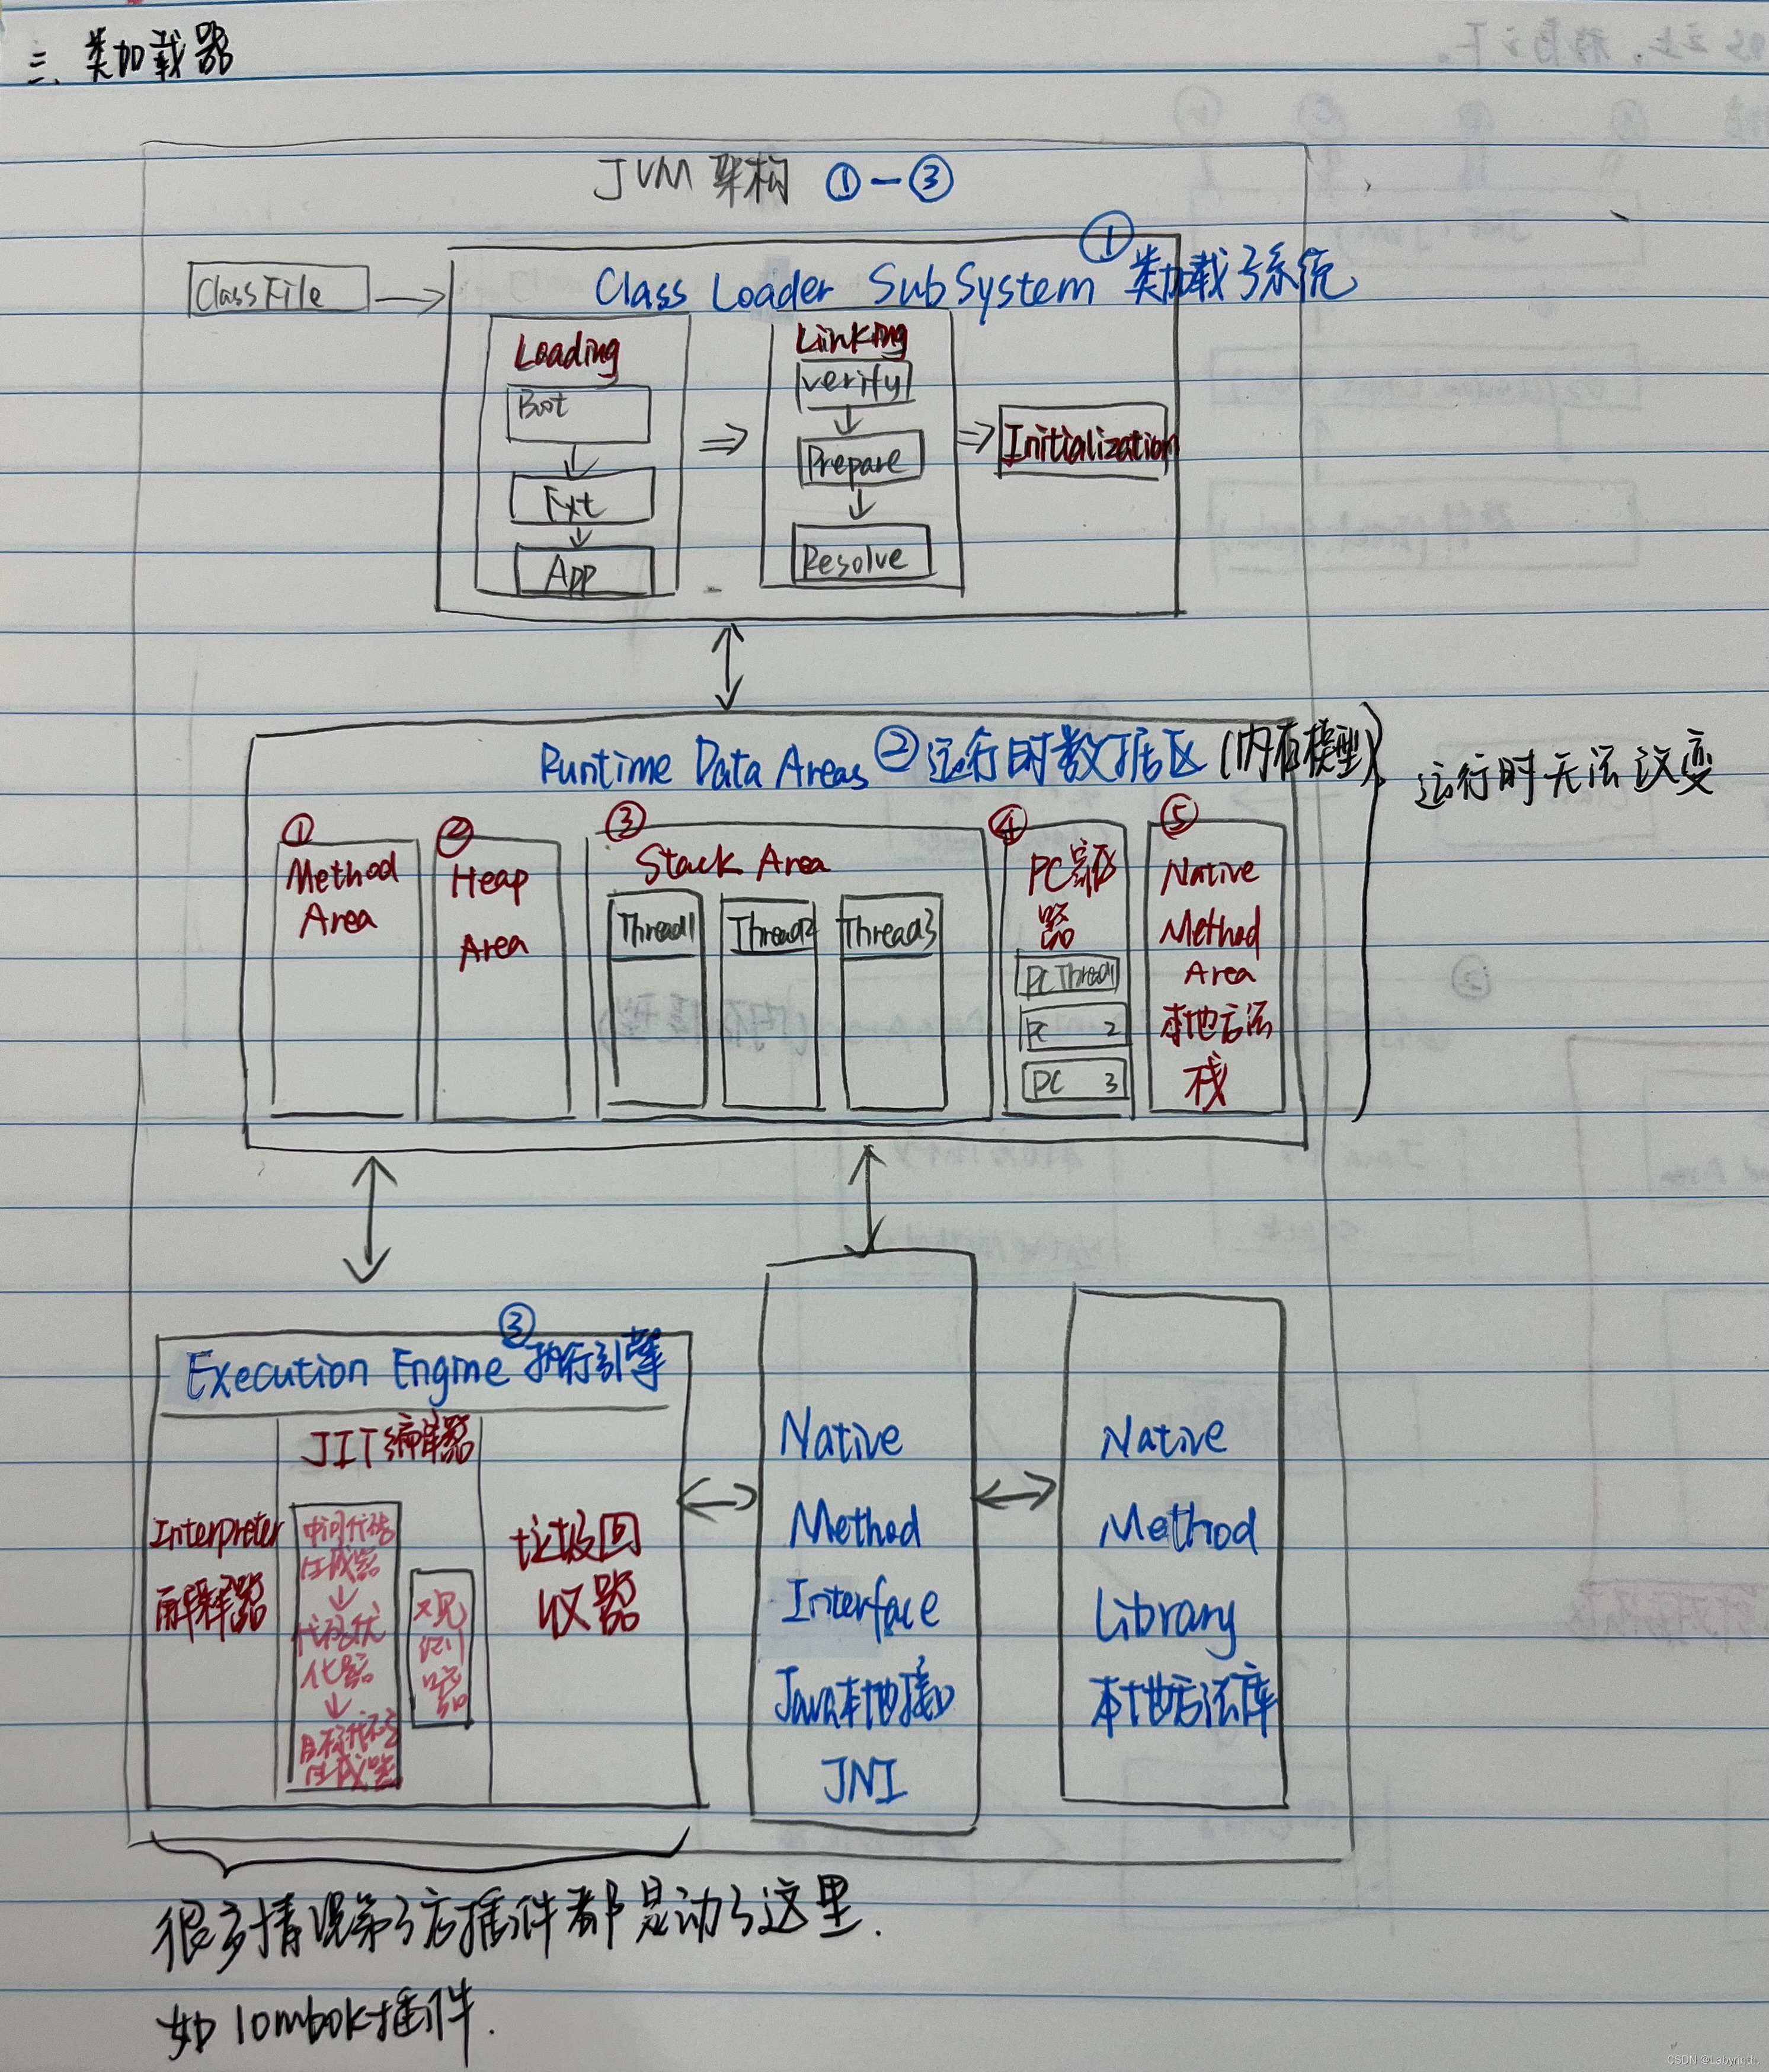 三、类加载器
JVM 架构 ①—③
ClassFile
①
Class Loader SubSystem 类加载子系统
Loading
Boot
Ext
App
Linking
verify
Prepare
Resolve
Initialization
Runtime Data Areas ② 运行时数据区 (内存模型)
运行时无法改变
①
Method
Area
②
Heap
Area
③
Stack Area
Thread1
Thread2
Thread3
④
PC寄存
器
PC Thread1
PC 2
PC 3
⑤
Native
Method
Area
本地方法
栈
③
Execution Engine 执行引擎
Interpreter
解释器
JIT编译器
中间代码
生成器
代码优
化器
目标代码
生成器
观
测
器
垃圾回
收器
Native
Method
Interface
Java本地接口
JNI
Native
Method
Library
本地方法库
很多情况第3方插件都是动了这里.
如 lombok插件.
CSDN @Labyrinth.